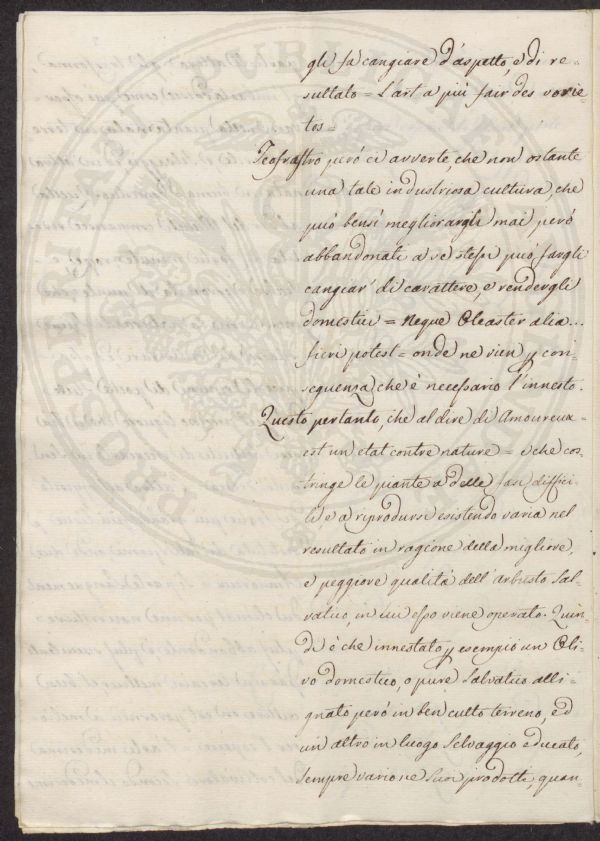 gli fa cangiare d'aspetto, e di re-
sultato = L'art a più fair des varie-
tes =
Teofrastro peró ci avverte, che non ostante
una tale industriosa cultura, che
puó bensì megliorargli mai, peró
abbandonati a se stessi puó fargli
cangiar' di carattere, e rendergli
domestici = Neque Oleaster alia...
fieri potest = onde ne vien p con-
sequenza che è necessario l'innesto.
Questo pertanto, che al dire di Amoureux
est un etat contre nature = e che cos-
tringe le piante a delle fasi diffici-
li e a riprodursi esistendo varia nel
resultato in ragione della migliore,
e peggiore qualità dell'arbusto sal-
vatico, in cui esso viene operato. Quin-
di è che innestato p esempio un Oli-
vo domestico, o pure salvatico alli-
gnato peró in ben culto terreno, ed
un'altro in luogo selvaggio educato,
sempre vario ne suoi prodotti, quan-